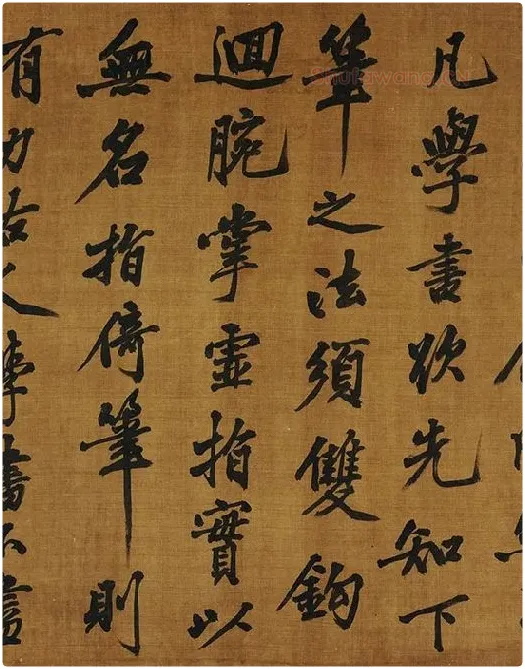 凡學書欲先知下
筆之法須雙鈎
迴腕掌虛指實以
無名指倚筆則
有力古人學書不盡